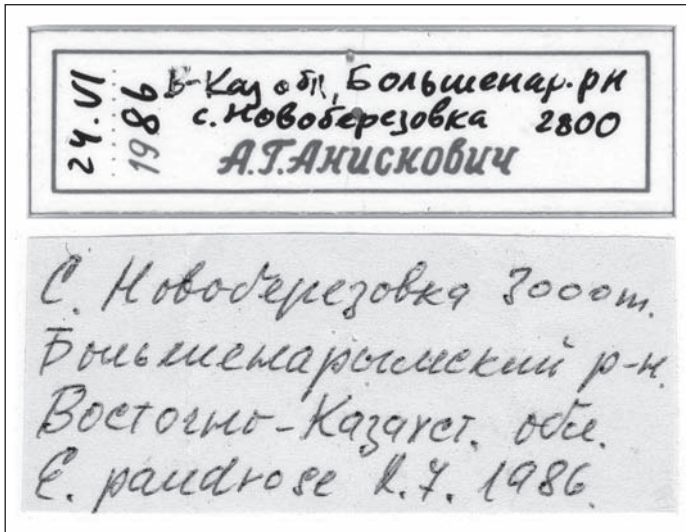 24.VI
1986
В-Каз обл, Большенар. рн
с. Новоберезовка 2800
А.Г.Анискович
С. Новоберезовка 3000m.
Большенарымский р-н.
Восточно-Казахст. обл.
E. pandrose 2.7. 1986.